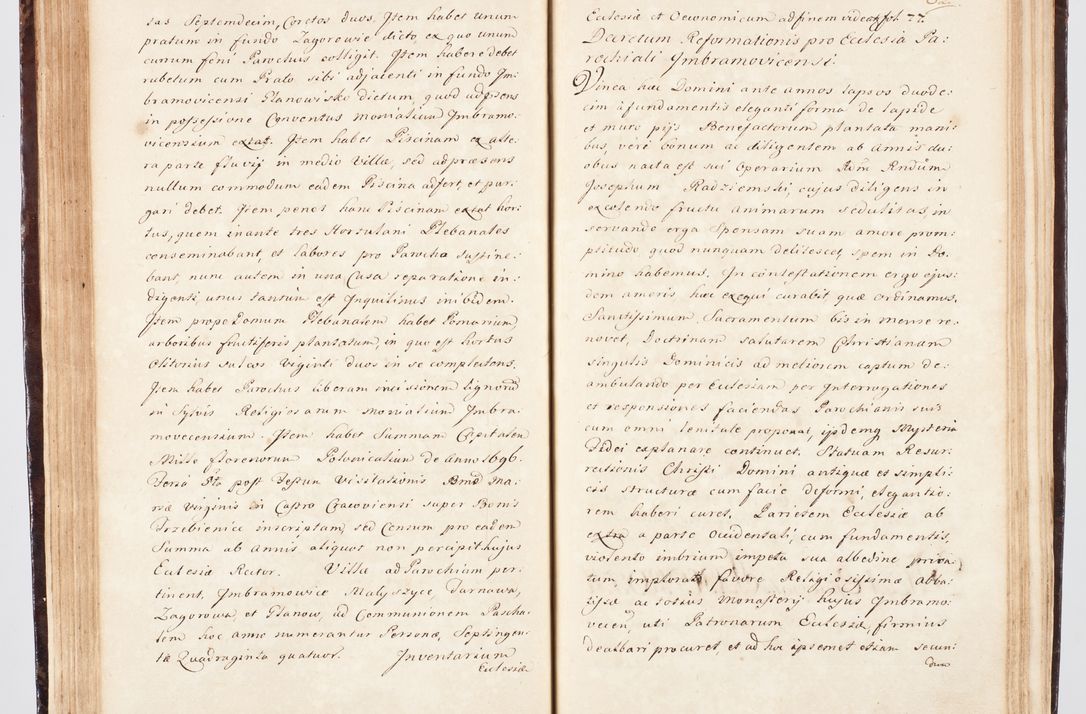 sas Septemdecim, Coretos duos. Item habet unum
pratum in fundo Zagorowie dicto, ex quo unum
currum fœni Parochus colligit. Item habere debet
rubetum cum Prato sibi adjacenti in fundo Im-
bramovicensi Planowisko dictum, quod ad præsens
in possessione Conventus monialium Imbramo-
vicensium extat. Item habet Piscinam ex alte-
ra parte fluvij in medio Villæ, sed ad præsens
nullum commodum eadem Piscina adfert, et pur-
gari debet. Item penes hanc Piscinam extat hor-
tus, quem inante tres Hortulani Plebanales
conseminabant, et labores pro Parocha sustine-
bant, nunc autem in una Casa reparatione in-
digenti, unus tantum est Inquilinus inibidem.
Item prope Domum Plebanalem habet Pomarium,
arboribus fructiferis plantatum, in quo est hortus
Olitorius sulcos Viginti duos in se complectens.
Item habet Parochus liberam incisionem lignorum
in Sylvis Religiosarum monialium Imbra-
movecensium. Item habet Summam Capitalem
Mille florenorum Polonicalium de anno 1696.
Feria 5ta post Festum Visitationis Bmæ Ma-
riæ Virginis in Castro Cracoviensi super Bonis
Trzebienice inscriptam, sed Censum pro eadem
Summa ab annis aliquot non percipit hujus
Ecclesiæ Rector. Villæ ad Parochiam per-
tinent, Imbramowice Malyszyce, Tarnawa,
Zagorowa et Glanow, ad Communionem Pascha-
lem hoc anno numerantur Personæ, Septingen-
tæ Quadraginta quatuor. Inventarium
Ecclesiæ
Ecclesiæ et Oeconomicum ad finem videatur fol: 77.
Decretum Reformationis pro Ecclesia Pa-
rochiali Imbramovicensi.
Vinea hæc Domini ante annos lapsos duode-
cim à fundamentis eleganti forma de lapide
et muro pijs Benefactorum plantata mani-
bus, vere bonum ac diligentem ab Annis du-
obus nacta est sui Operarium Adm Rndum
Josephum Radziemski, cujus diligens in
excolendo fructu animarum sedulitas, in
servando erga Sponsam suam amore prom-
ptitudo quod nunquam delitescet, spem in Do-
mino habemus. In contestationem ergo ejus-
dem amoris hæc exequi curabit quæ ordinamus.
Sanctissimum Sacramentum bis in mense re-
novet, Doctrinam salutarem Christianam
singulis Dominicis ad meliorem captum de-
ambulando per Ecclesiam per Interrogationes
et responsiones faciendas Parochianis suis
cum omni lenitate proponat, ijsdemq Mysteria
Fidei explanare continuet. Statuam Resur-
rectionis Christi Domini antiquæ et simpli-
cis structuræ cum facie deformi, elegantio-
rem haberi curet. Parietem Ecclesiæ ab
extra a parte Occidentali, cum fundamentis,
violento imbrium impetu sua albedine priva-
tum, implorato favore Religiosissimæ Abba-
tissæ ac totius Monasterij hujus Imbramo-
vecen, uti Patronarum Ecclesiæ, firmius
dealbari procuret, et ad hoc ipsemet etiam secun-
dum